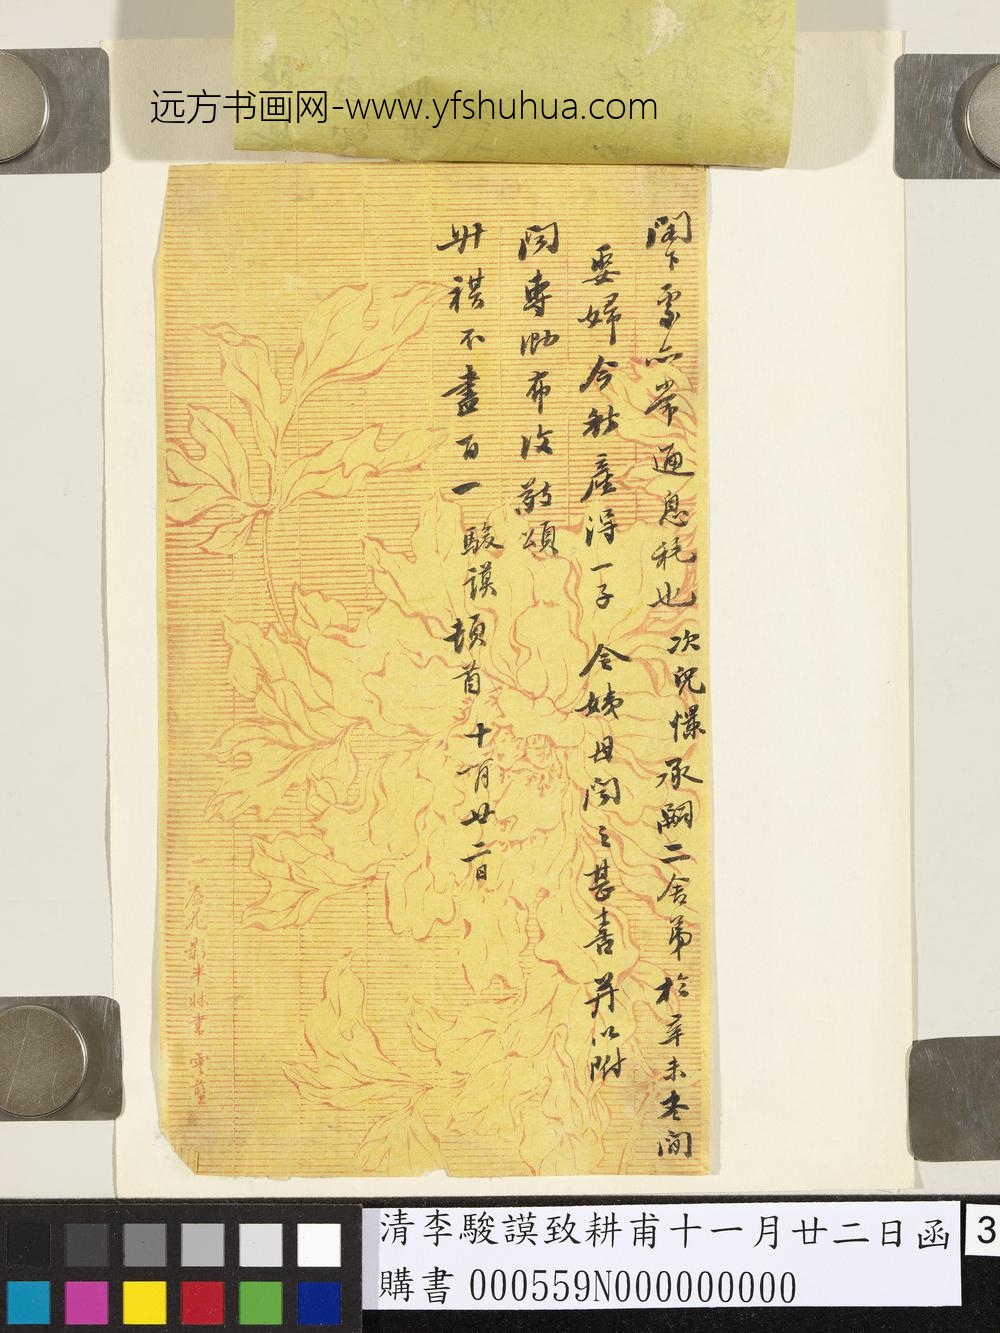 远方书画网-www.yfshuhua.com
閣下處亦常通息耗也次兒 承嗣二舍弟於辛未冬間
娶婦今秋產得一子令姨母聞之甚喜并以附
聞專泐布復敬頌
升祺不盡百一駿謨頓首十一月廿二日
花影半牀書
清李駿謨致耕甫十一月廿二日函
購書 000559N000000000
3